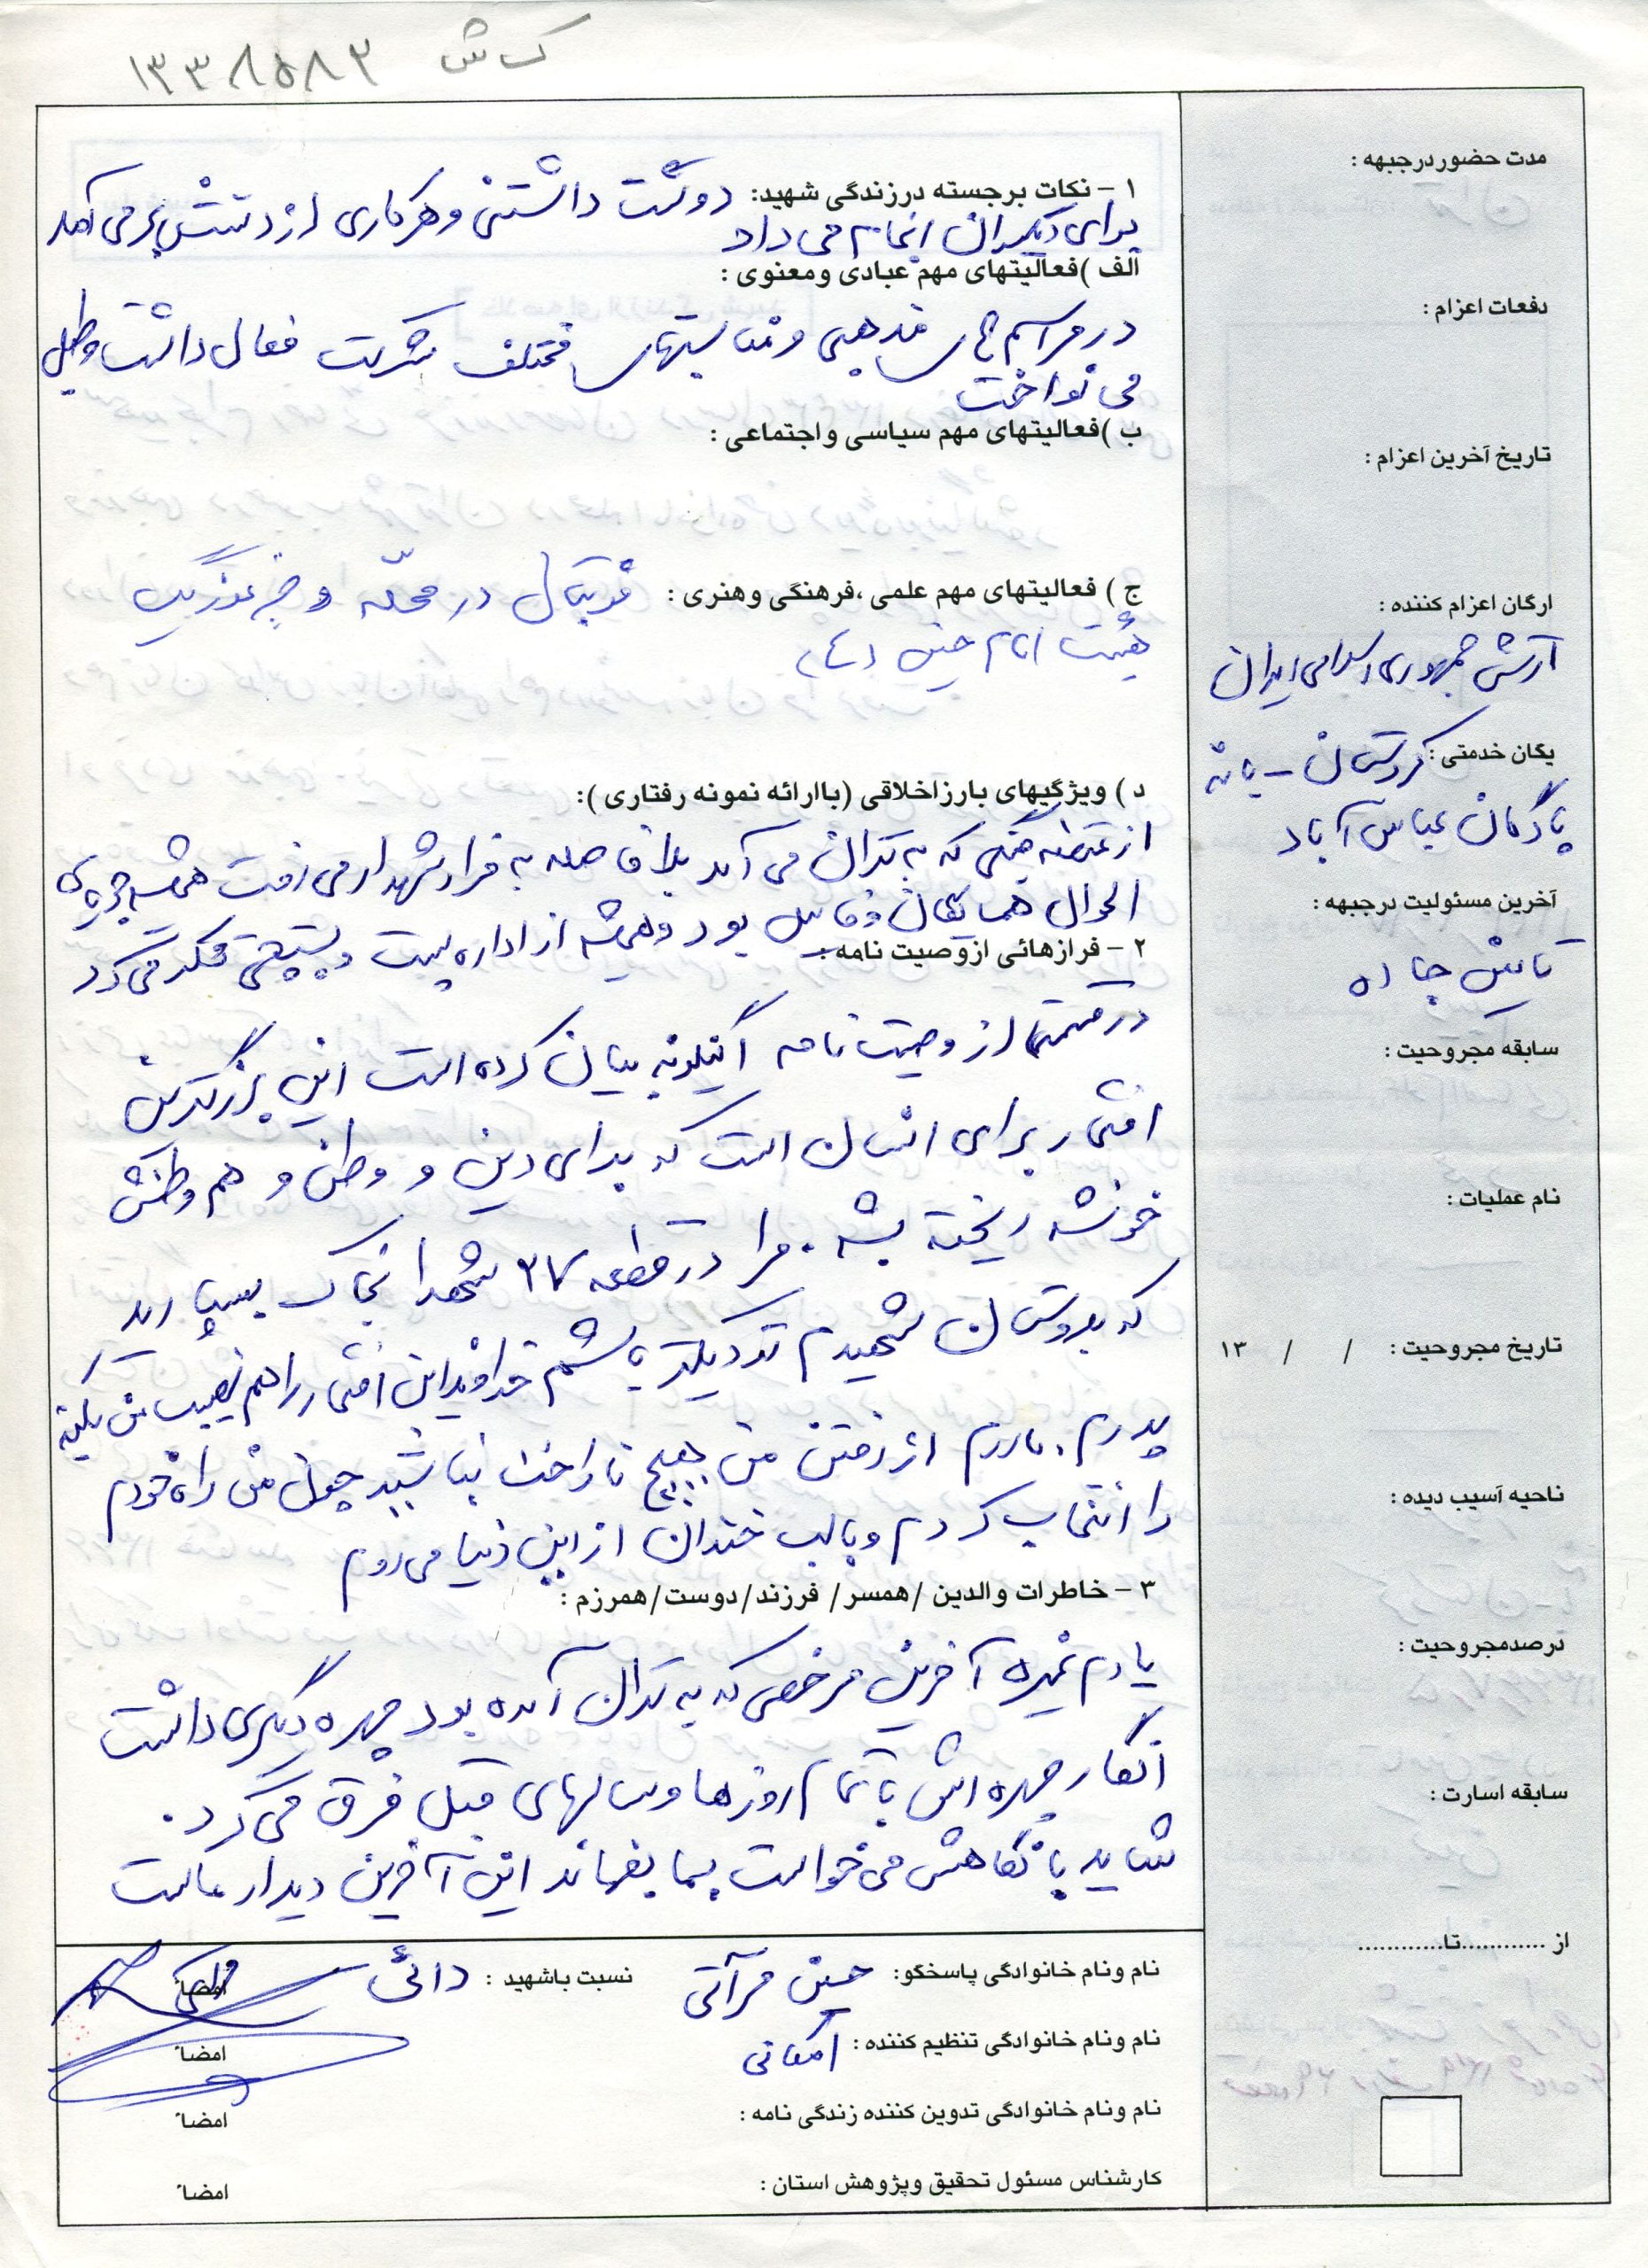 ک ش ۱۳۳۸۵۸۳
۱ - نکات برجسته درزندگی شهید: دوست داشتنی و هر کاری از دستش بر می آمد
برای دیگران انجام می داد
الف )فعالیتهای مهم عبادی ومعنوی :
در مراسم های مذهبی و مناسبتهای مختلف شرکت فعال داشت و طبل
می نواخت
ب )فعالیتهای مهم سیاسی واجتماعی :
ج ) فعالیتهای مهم علمی ،فرهنگی وهنری : فوتبال در محله و جزء
هیئت امام حسین (ع)
د ) ویژگیهای بارزاخلاقی (باارائه نمونه رفتاری ):
از منطقه جنگی که به تهران می آمد بلافاصله به مزار شهدا می رفت همیشه جویای
احوال همسایگان و فامیل بود و همیشه از اداره پست و پستچی
۲ - فرازهائی ازوصیت نامه :
در قسمتی از وصیت نامه اینگونه بیان کرده است این بزرگترین
افتخار برای انسان است که برای دین و وطن و هم وطنش
خونش ریخته بشه . مرا در قطعه ۲۷ شهدا بخاک بسپارید
که بدوستان شهیدم نزدیکتر باشم خداوند این افتخار را هم نصیب من بکنه
پدرم . مادرم از رفتن من هیچ ناراحت نباشید چون من راه خودم
را انتخاب کردم و با لب خندان از این دنیا می روم
۳ - خاطرات والدین /همسر/ فرزند/دوست/همرزم :
یادم نمیره آخرین مرخصی که به تهران آمده بود چهره دیگری داشت
انگار چهره اش با تمام روزها و سالهای قبل فرق می کرد .
شاید با نگاهش می خواست بما بفهماند این آخرین دیدار ماست
نام ونام خانوادگی پاسخگو: حسین مرآتی نسبت باشهید : دائی امضاً
نام ونام خانوادگی تنظیم کننده : امضاً
نام ونام خانوادگی تدوین کننده زندگی نامه : امضاً
کارشناس مسئول تحقیق وپژوهش استان : امضاً
مدت حضوردرجبهه :
دفعات اعزام :
تاریخ آخرین اعزام :
ارگان اعزام کننده :
ارتش جمهوری اسلامی ایران
یگان خدمتی : کردستان - بانه
پادگان عباس آباد
آخرین مسئولیت درجبهه :
تامین جاده
سابقه مجروحیت :
نام عملیات :
تاریخ مجروحیت : / / ۱۳
ناحیه آسیب دیده :
درصدمجروحیت :
سابقه اسارت :
از ............تا............